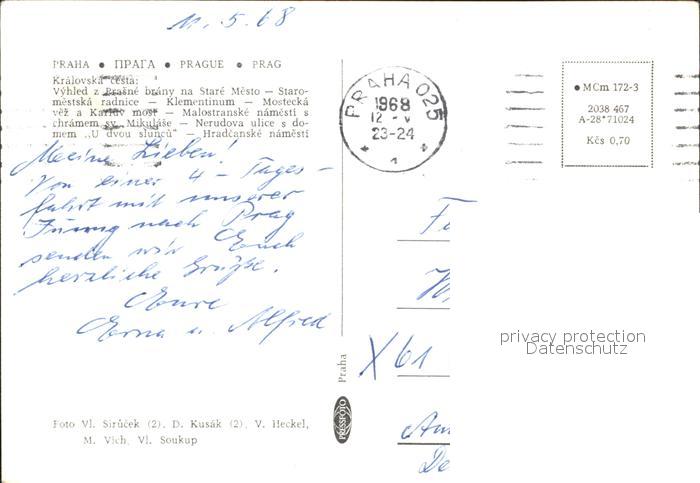 11. 5. 68
PRAHA ● ПРАГА ● PRAGUE ● PRAG
Královská cesta:
Výhled z Prašné brány na Staré Město — Staro-
městská radnice — Klementinum — Mostecká
věž a Karlův most — Malostranské náměstí s
chrámem sv. Mikuláše — Nerudova ulice s do-
mem „U dvou slunců" — Hradčanské náměstí
Meine Lieben!
Von einer 4 - Tages -
fahrt mit unserer
Innung nach Prag
senden wir Euch
herzliche Grüße.
Eure
Erna u. Alfred
Foto Vl. Sirůček (2), D. Kusák (2), V. Heckel,
M. Vich, Vl. Soukup
Praha
PRESSFOTO
PRAHA 025
1968
12 - V
23-24
1
● MCm 172-3
2038 467
A-28*71024
Kčs 0,70
X 61
privacy protection
Datenschutz